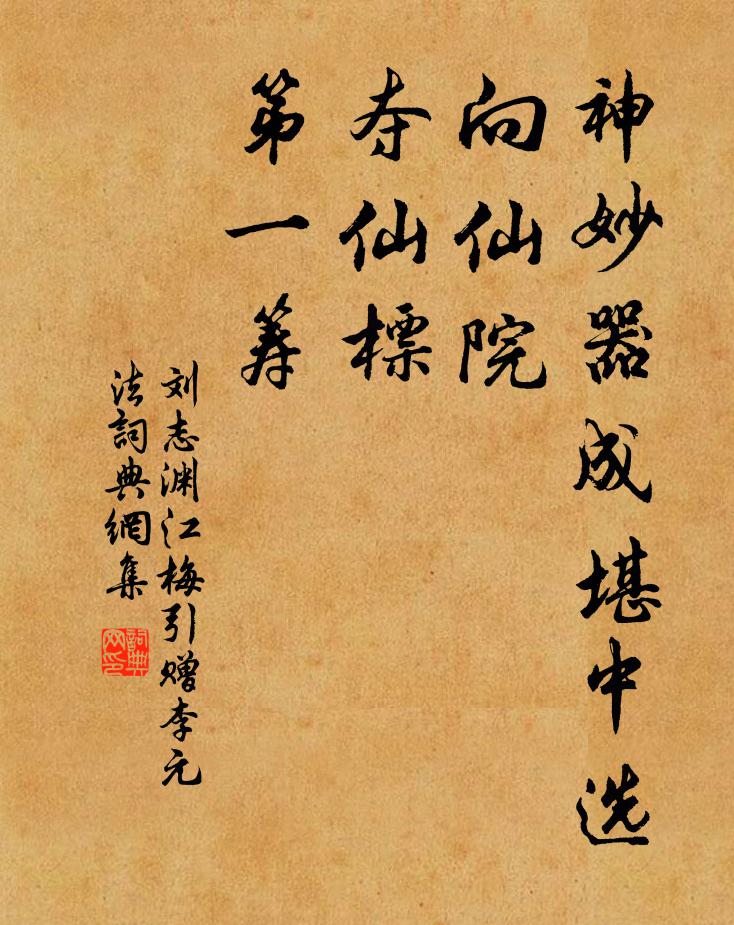 神妙器成堪中选
向仙院
夺仙標
第一筹
刘志渊江梅引赠李元
法詞典網集
詞典
网印